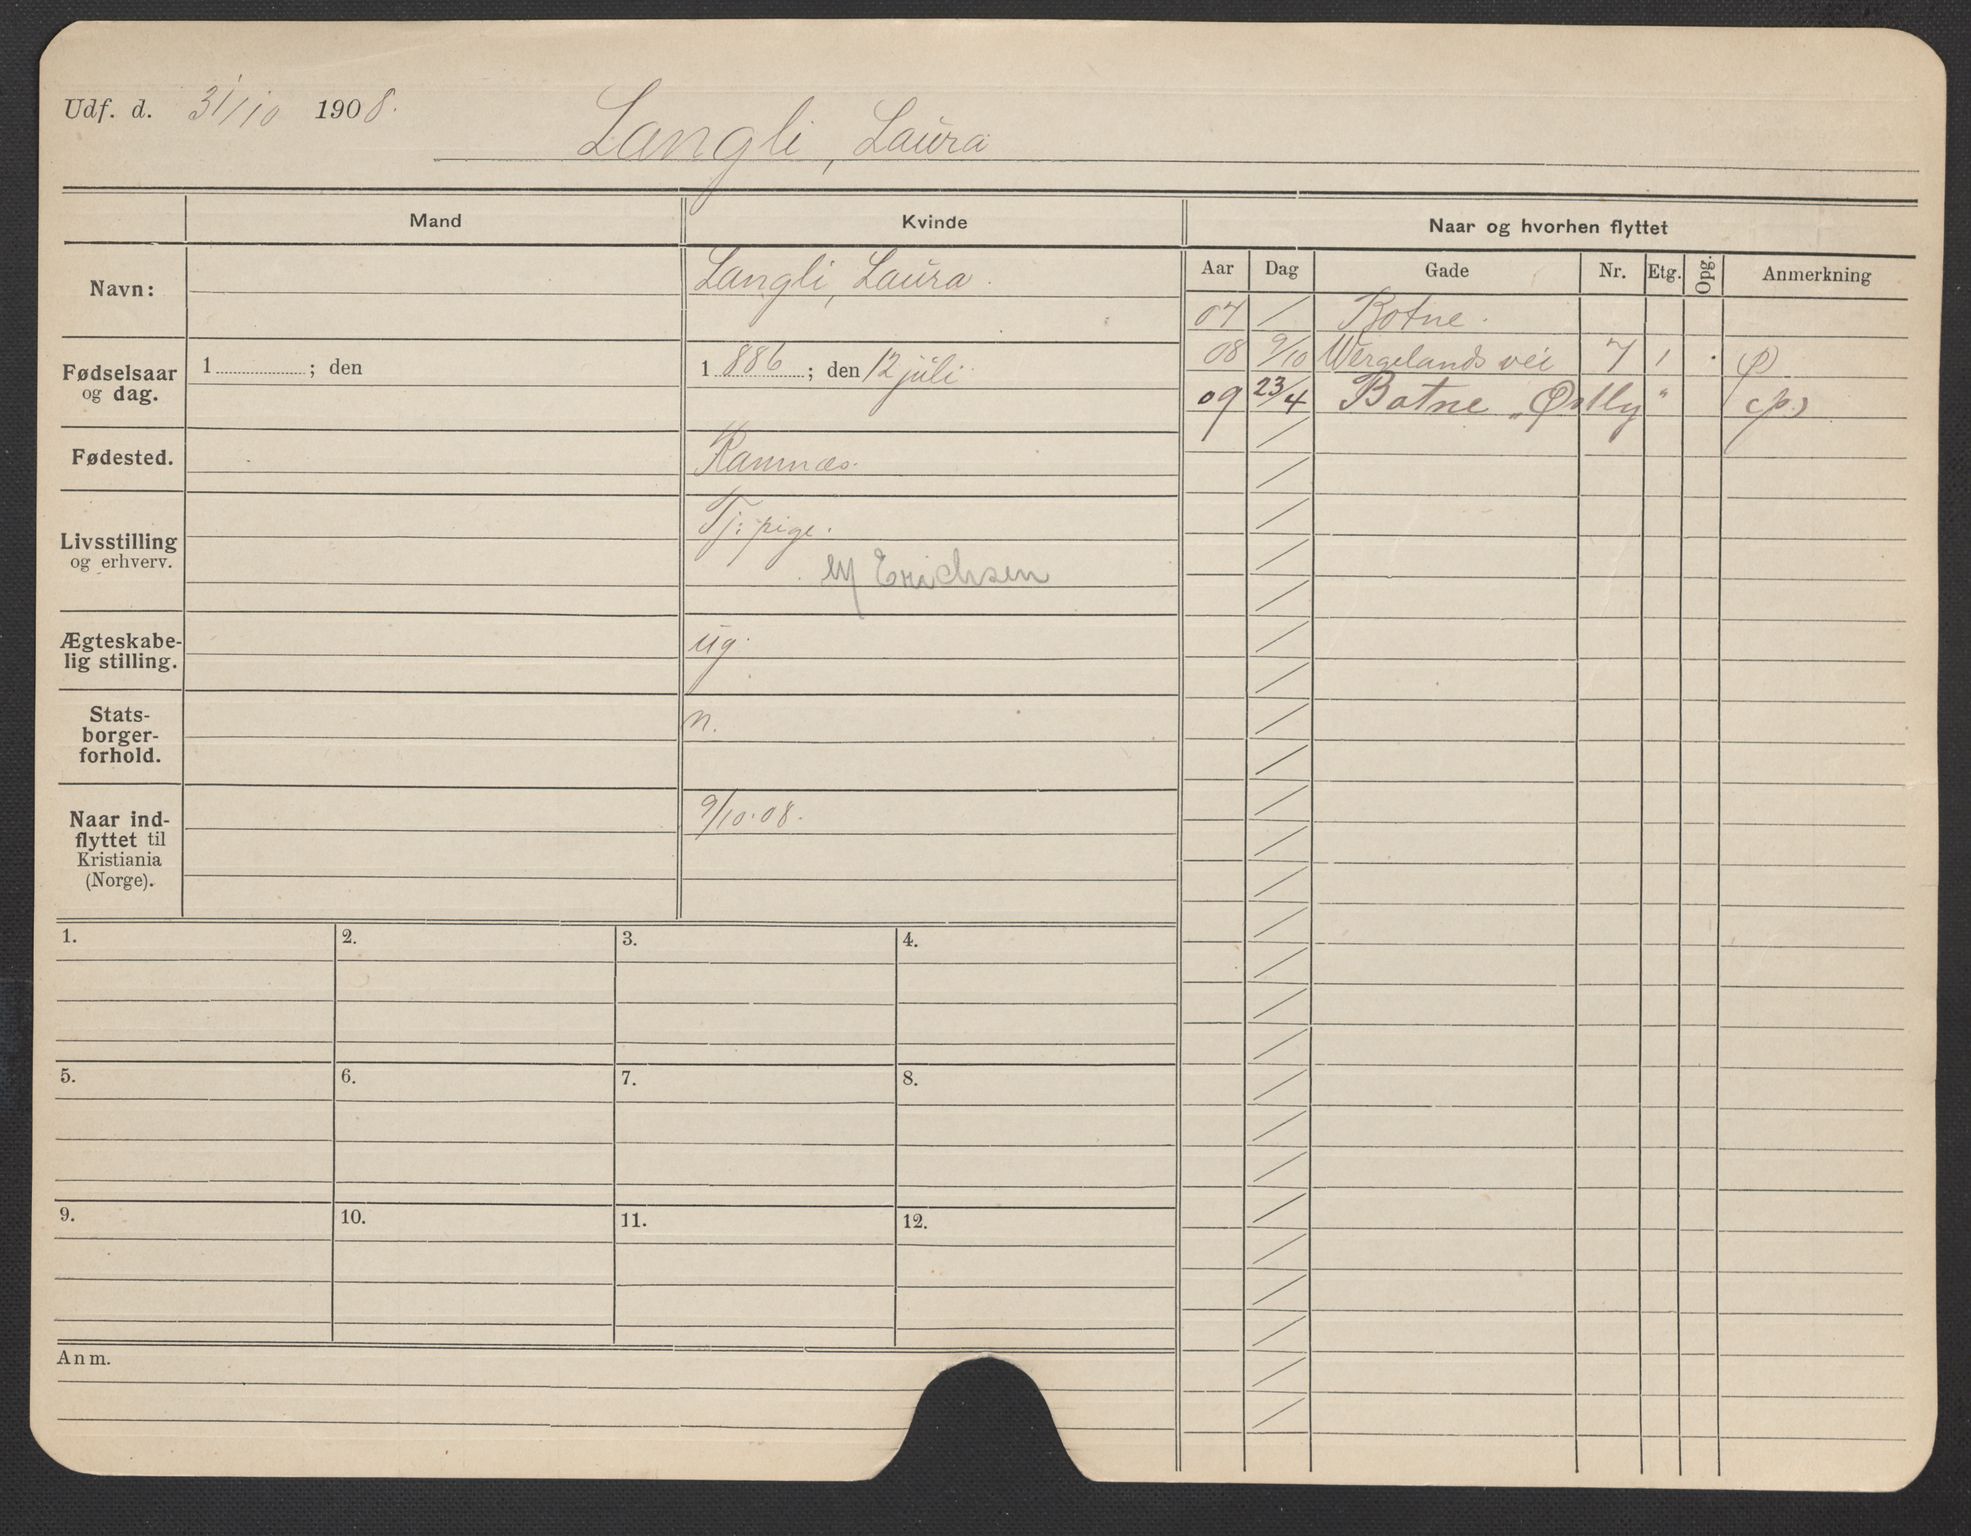 Udf. d. 31/10 1908.
Langli, Laura
Mand
Kvinde
Naar og hvorhen flyttet
Aar Dag Gade Nr. Etg. Opg. Anmerkning
Navn:
Langli, Laura.
Fødselsaar
og dag.
1 ; den
1 886 ; den 12 juli
Fødested.
Ramnæs.
Livsstilling
og erhverv.
Tj: pige.
Erichsen
Ægteskabe-
lig stilling.
ug.
Stats-
borger-
forhold.
n.
Naar ind-
flyttet til
Kristiania
(Norge).
9/10.08.
07 / Botne.
08 9/10 Wergelandsvei 7 1 .
09 23/4 Botne „Østly" (p.)
1.
2.
3.
4.
5.
6.
7.
8.
9.
10.
11.
12.
Anm.